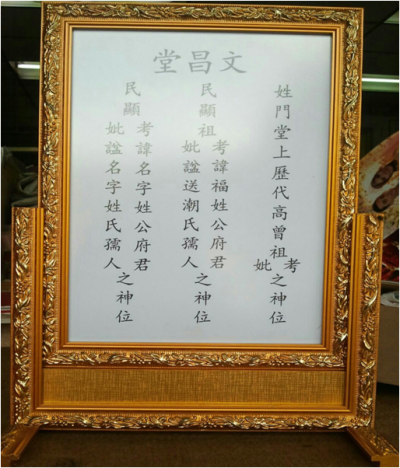 文昌堂
姓門堂上歷代高曾祖考妣之神位
民顯祖
考諱福姓公府君
妣謚送潮氏孺人
之神位
民顯
考諱名字姓公府君
妣謚名字姓氏孺人
之神位